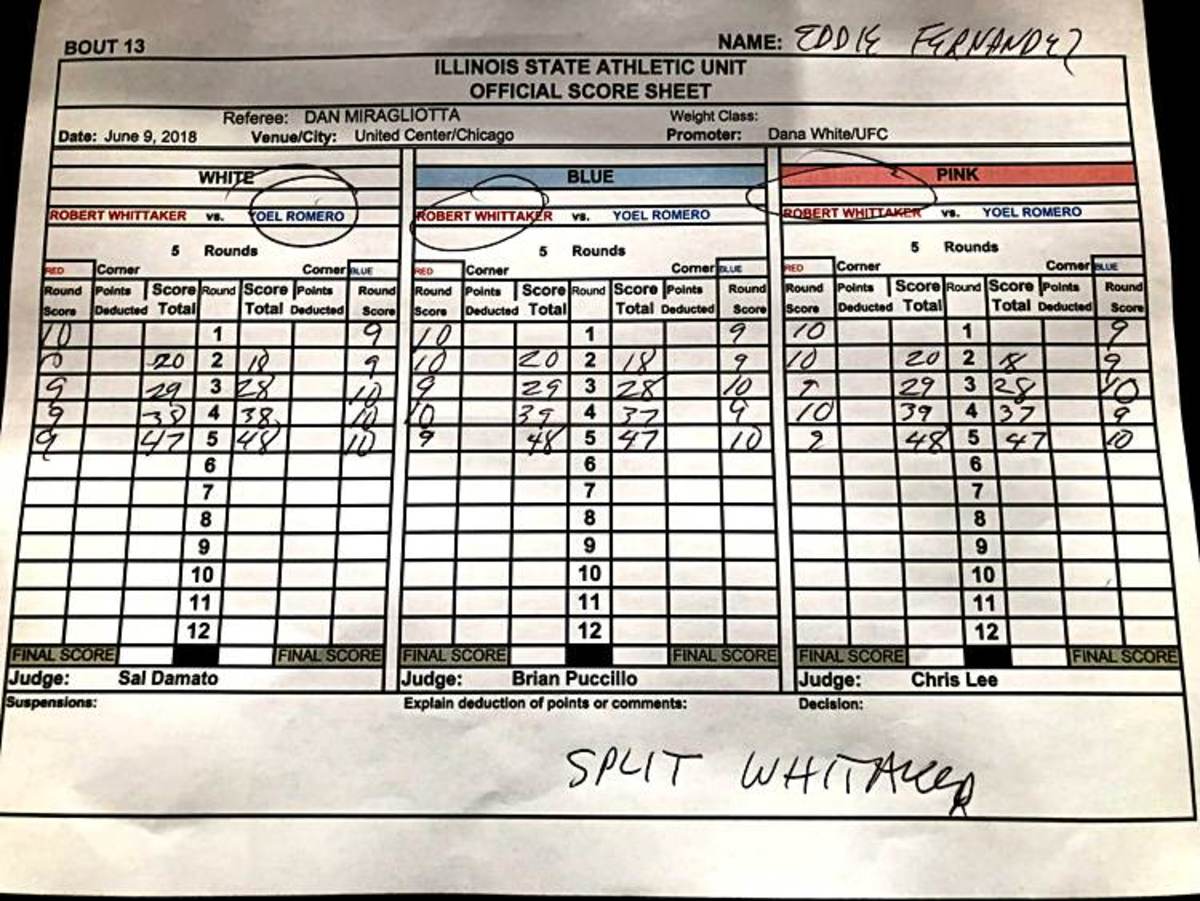 BOUT 13 NAME: EDDIE FERNANDEZ
ILLINOIS STATE ATHLETIC UNIT
OFFICIAL SCORE SHEET
Referee: DAN MIRAGLIOTTA Weight Class:
Date: June 9, 2018 Venue/City: United Center/Chicago Promoter: Dana White/UFC
WHITE BLUE PINK
ROBERT WHITTAKER vs. YOEL ROMERO ROBERT WHITTAKER vs. YOEL ROMERO ROBERT WHITTAKER vs. YOEL ROMERO
5 Rounds 5 Rounds 5 Rounds
RED Corner Corner BLUE RED Corner Corner BLUE RED Corner Corner BLUE
Round Points Score Round Score Points Round Round Points Score Round Score Points Round Round Points Score Round Score Points Round
Score Deducted Total Total Deducted Score Score Deducted Total Total Deducted Score Score Deducted Total Total Deducted Score
10 1 9 10 1 9 10 1 9
20 2 18 9 10 20 2 18 9 10 20 2 18 9
9 29 3 28 10 9 29 3 28 10 9 29 3 28 10
9 38 4 38 10 10 39 4 37 9 10 39 4 37 9
9 47 5 48 10 9 48 5 47 10 9 48 5 47 10
6 6 6
7 7 7
8 8 8
9 9 9
10 10 10
11 11 11
12 12 12
FINAL SCORE FINAL SCORE FINAL SCORE FINAL SCORE FINAL SCORE FINAL SCORE
Judge: Sal Damato Judge: Brian Puccillo Judge: Chris Lee
Suspensions: Explain deduction of points or comments: Decision:
SPLIT WHITAKER